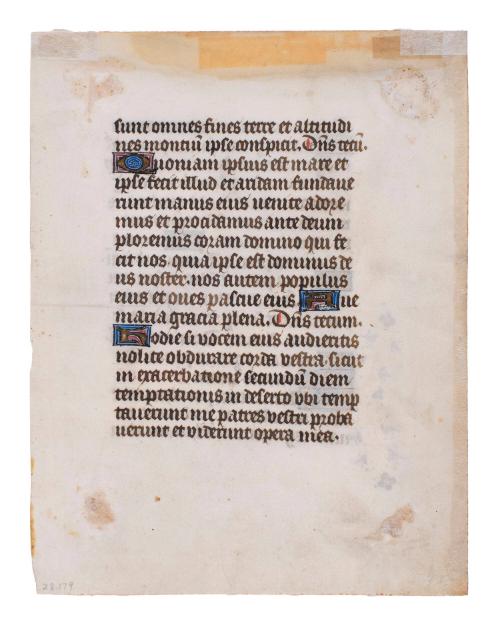 sunt omnes fines terre et altitudi
nes montiū ipse conspicit. Dn̄s tecū.
Quoniam ipsius est mare et
ipse fecit illud et aridam fundaue
runt manus eius uenite adore
mus et procidamus ante deum
ploremus coram domino qui fe
cit nos. quia ipse est dominus de
us noster. nos autem populus
eius et oues pascue eius. Aue
maria gracia plena. Dn̄s tecum.
Hodie si vocem eius audieritis
nolite obdurare corda vestra. sicut
in exacerbatione secundū diem
temptationis in deserto vbi temp
tauerunt me patres vestri proba
uerunt et viderunt opera mea.
28.179